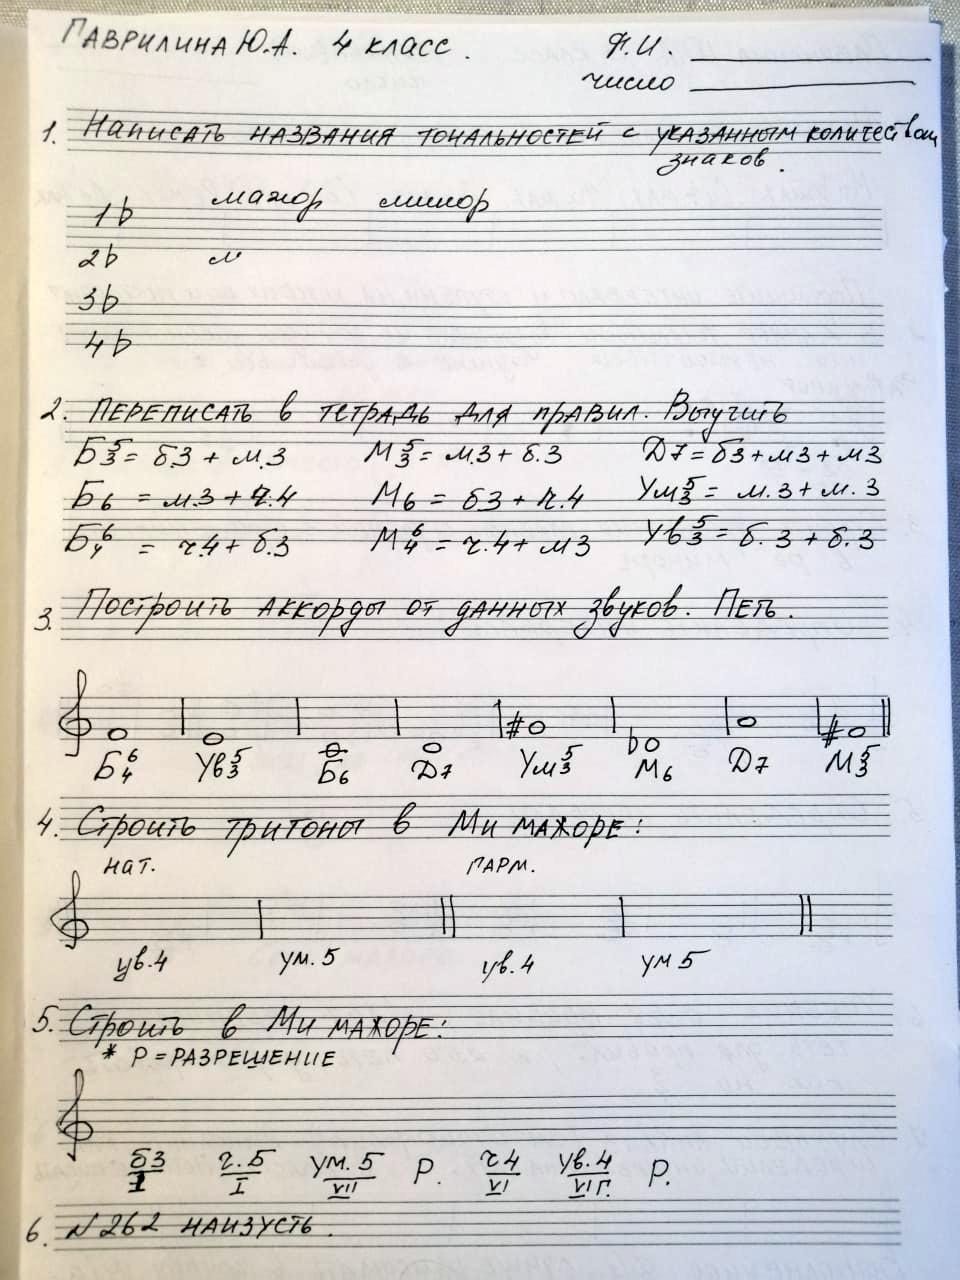 Гаврилина Ю.А. 4 класс. Ф.И. ________
число ________
1. Написать названия тональностей с указанным количеством
знаков.
мажор минор
1♭
2♭ м
3♭
4♭
2. Переписать в тетрадь для правил. Выучить
Б53 = б.3 + м.3 М53 = м.3 + б.3 Д7 = б3 + м3 + м3
Б6 = м.3 + ч.4 М6 = б3 + ч.4 Ум53 = м.3 + м.3
Б64 = ч.4 + б.3 М64 = ч.4 + м3 Ув53 = б.3 + б.3
3. Построить аккорды от данных звуков. Петь.
Б64 Ув53 Б6 Д7 Ум53 М6 Д7 М53
4. Строить тритоны в Ми мажоре:
нат. гарм.
ув.4 ум.5 ув.4 ум5
5. Строить в Ми мажоре:
* Р = РАЗРЕШЕНИЕ
б3/I ч.5/I ум.5/VII Р. ч4/VI ув.4/VIг. Р.
6. N262 наизусть.